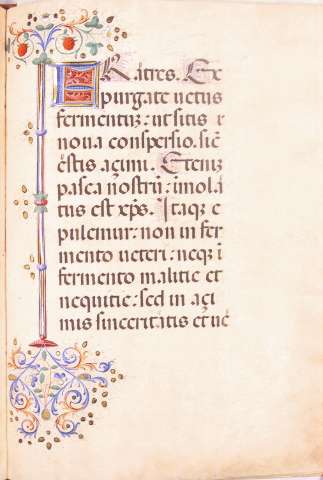 FRatres. Ex
purgate uetus
fermentuz: ut sitis n
noua conspersio. sicut
estis açimi. Eteniz
pasca nostrũ: imola
tus est xp̃s. Itaqz e
pulemur: non in fer
mento ueteri: neqz ĩ
fermento malitie et
nequitie: sed in açi
mis sinceritatis et ue